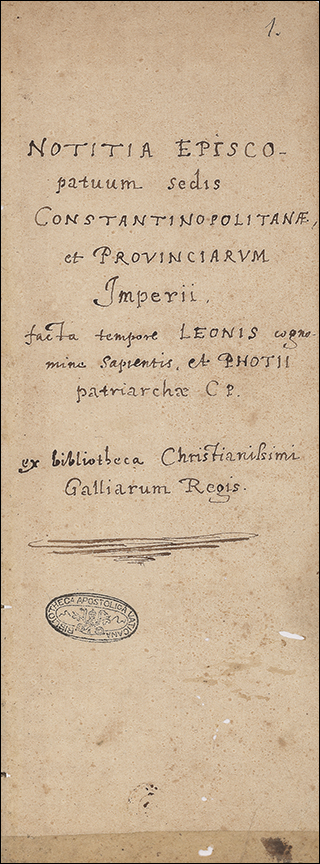 1.
NOTITIA EPISCO-
patuum sedis
CONSTANTINOPOLITANÆ,
et PROVINCIARVM
Imperii,
facta tempore LEONIS cogno-
mine Sapientis, et PHOTII
patriarchæ CP.
ex bibliotheca Christianissimi
Galliarum Regis.
BIBLIOTHECA APOSTOLICA VATICANA